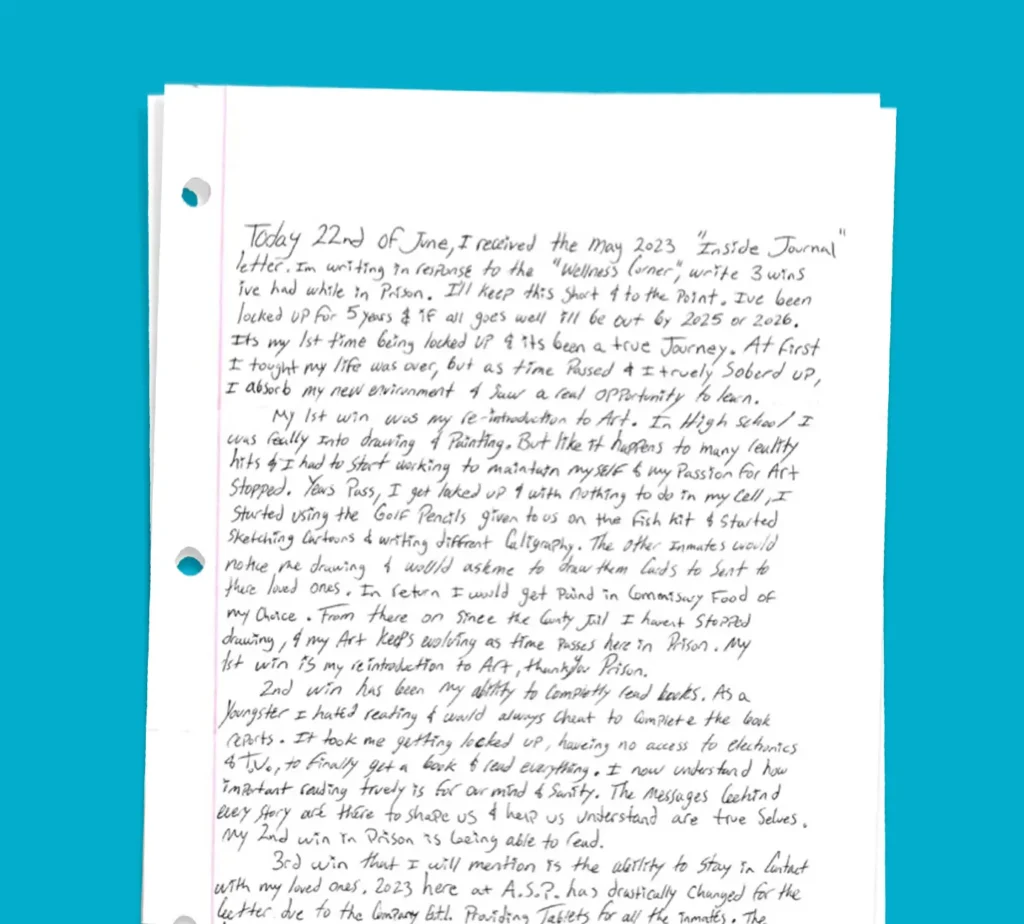 Today 22nd of June, I received the May 2023 "Inside Journal"
letter. Im writing in response to the "Wellness Corner", write 3 wins
ive had while in Prison. I'll keep this short & to the Point. Ive been
locked up for 5 years & if all goes well ill be out by 2025 or 2026.
Its my 1st time being locked up & its been a true Journey. At first
I tought my life was over, but as time Passed & I truely Soberd up,
I absorb my new environment & saw a real opportunity to learn.
My 1st win was my re-introduction to Art. In High school I
was really into drawing & Painting. But like it happens to many reality
hits & I had to start working to maintain myself & my Passion for Art
stopped. Years Pass, I get locked up & with nothing to do in my cell, I
started using the Golf Pencils given to us on the fish kit & started
sketching Cartoons & writing diffrent Caligraphy. The other Inmates would
notice me drawing & would ask me to draw them Cards to sent to
there loved ones. In return I would get Paid in Commisary Food of
my Choice. From there on since the County Jail I havent stopped
drawing, & my Art keeps evolving as time passes here in Prison. My
1st win is my reintroduction to Art, thankyou Prison.
2nd win has been my ability to completly read books. As a
youngster I hated reading & would always cheat to complete the book
reports. It took me getting locked up, haveing no access to electronics
& T.V., to finally get a book & read everything. I now understand how
important reading truely is for our mind & Sanity. The Messages behind
every story are there to shape us & help us understand are true selves.
My 2nd win in Prison is being able to read.
3rd win that I will mention is the ability to stay in Contact
with my loved ones. 2023 here at A.S.P. has drastically changed for the
better due to the Company Gtl. Providing Tablets for all the inmates. The